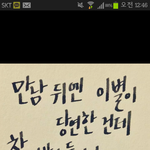 SKT 오전 12:46
만남 뒤엔 이별이
당연한 건데